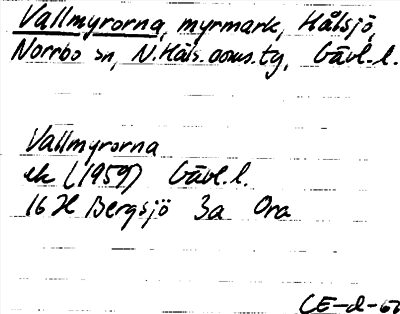 Vallmyrorna, myrmark, Hålsjö,
Norrbo sn, N.Häls. doms.tg, Gävl.l.
Vallmyrorna
ek (1959) Gävl.l.
16 H Bergsjö 3a Ora
CE-d-67